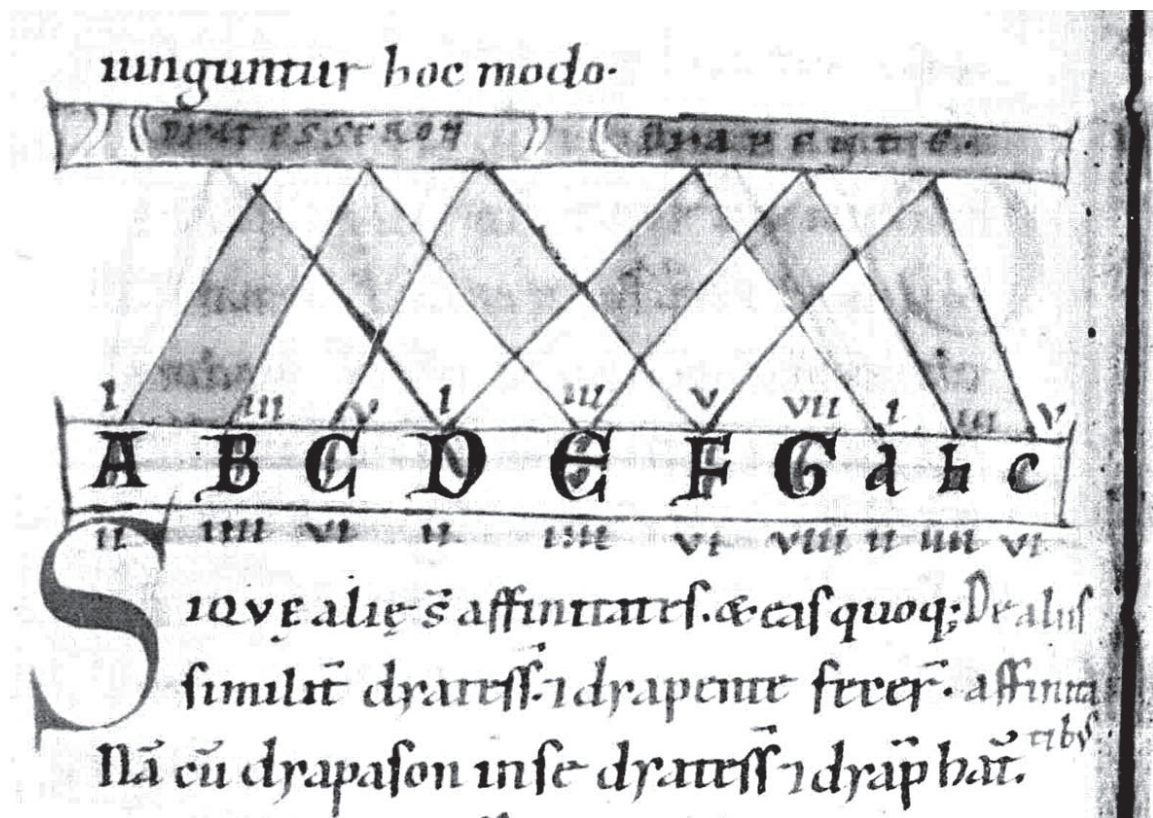 iunguntur hoc modo·
DIATESSERON DIAPENTE·
I III V I III V VII I III V
A B C D E F G a h c
II IIII VI II IIII VI VIII II IIII VI
SIQVĘ alię s̄ affinitates.& eas quoq; De aliis
similit̄ dyatess̄.⁊ dyapente fecer̄. affinita
tibus
Nā cū dyapason in se dyatess̄ ⁊ dyap̄ hāt.